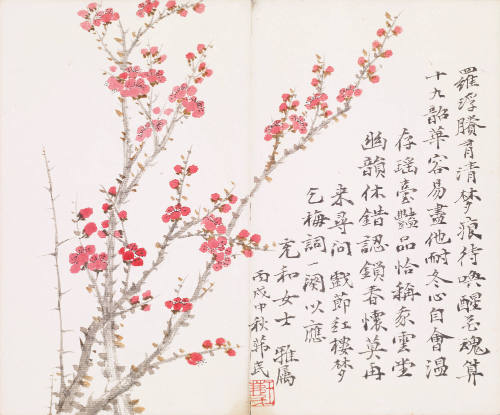 羅浮賸有清梦痕待喚醒花魂算
十九韶華容易盡他耐冬心自會溫
存瑤臺豔品恰稱雲堂
幽韻休錯認鎖春懷莫再
来尋问戲節紅樓梦
乞梅詞一闋以應
充和女士 雅屬
丙戌中秋 民